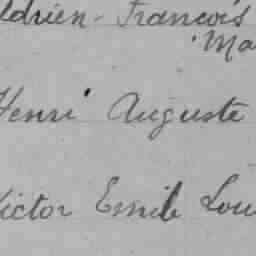 Adrien-François
Ma
Henri Auguste
Victor Emile Lou